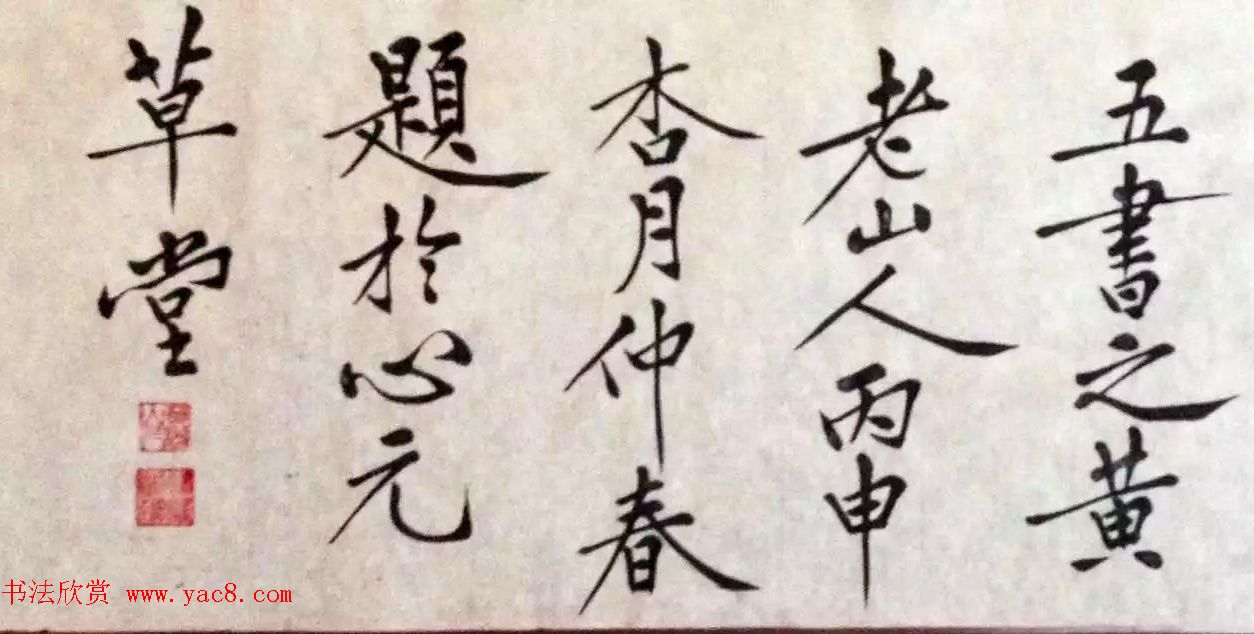 五書之黄
老山人丙申
杏月仲春
題於心元
草堂
书法欣赏 www.yac8.com